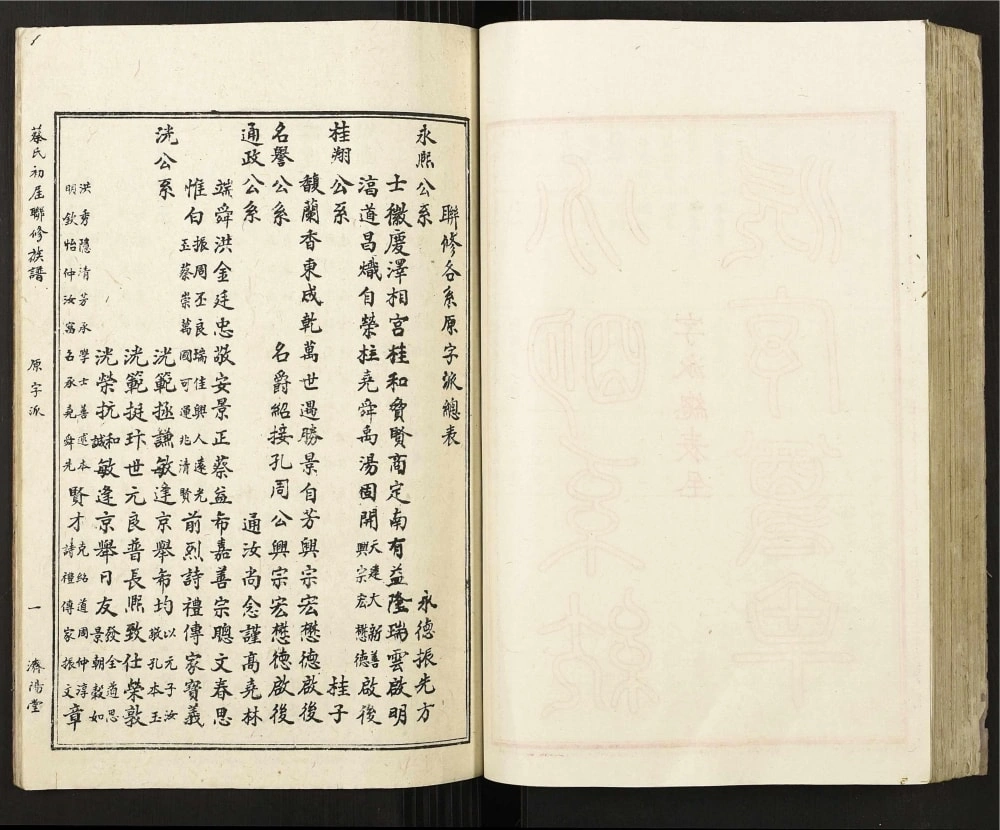 聯修各系原字派總表
永熙公系 永德振先方
士徽慶澤相宫桂和貲賢商定南有益隆瑞雲啟明
滀道昌熾自榮拄堯舜禹湯固開天建大新善啟後
興宗宏懋德
桂翔公系 桂子
馥蘭香東成乾萬世遇勝景自芳興宗宏懋德啟後
名譽公系 名爵紹接孔周公興宗宏懋德啟後
通政公系 通汝尚念謹高堯林
端舜洪金廷忠敬安景正蔡益布嘉善宗聰文春思
惟白振周丕良瑞佳興人遠光前烈詩禮傳家寶義
玉蔡崇萬國可運兆清賢
洸公系 洸範拯謙敏逹京舉布均以元子汝
敬孔本玉
洸範挺玝世元良普長熙致仕榮敦
洸榮抗和敏逢京舉日友發全遒思
誠 景朝穀如
洪秀隱清芳永學士善述本賢才克紹道周仲淳章
明欽怡仲汝寓名承堯舜先 詩禮傳家振文
蔡氏初届聯修族譜
原字派
一
濟陽堂
字派總表